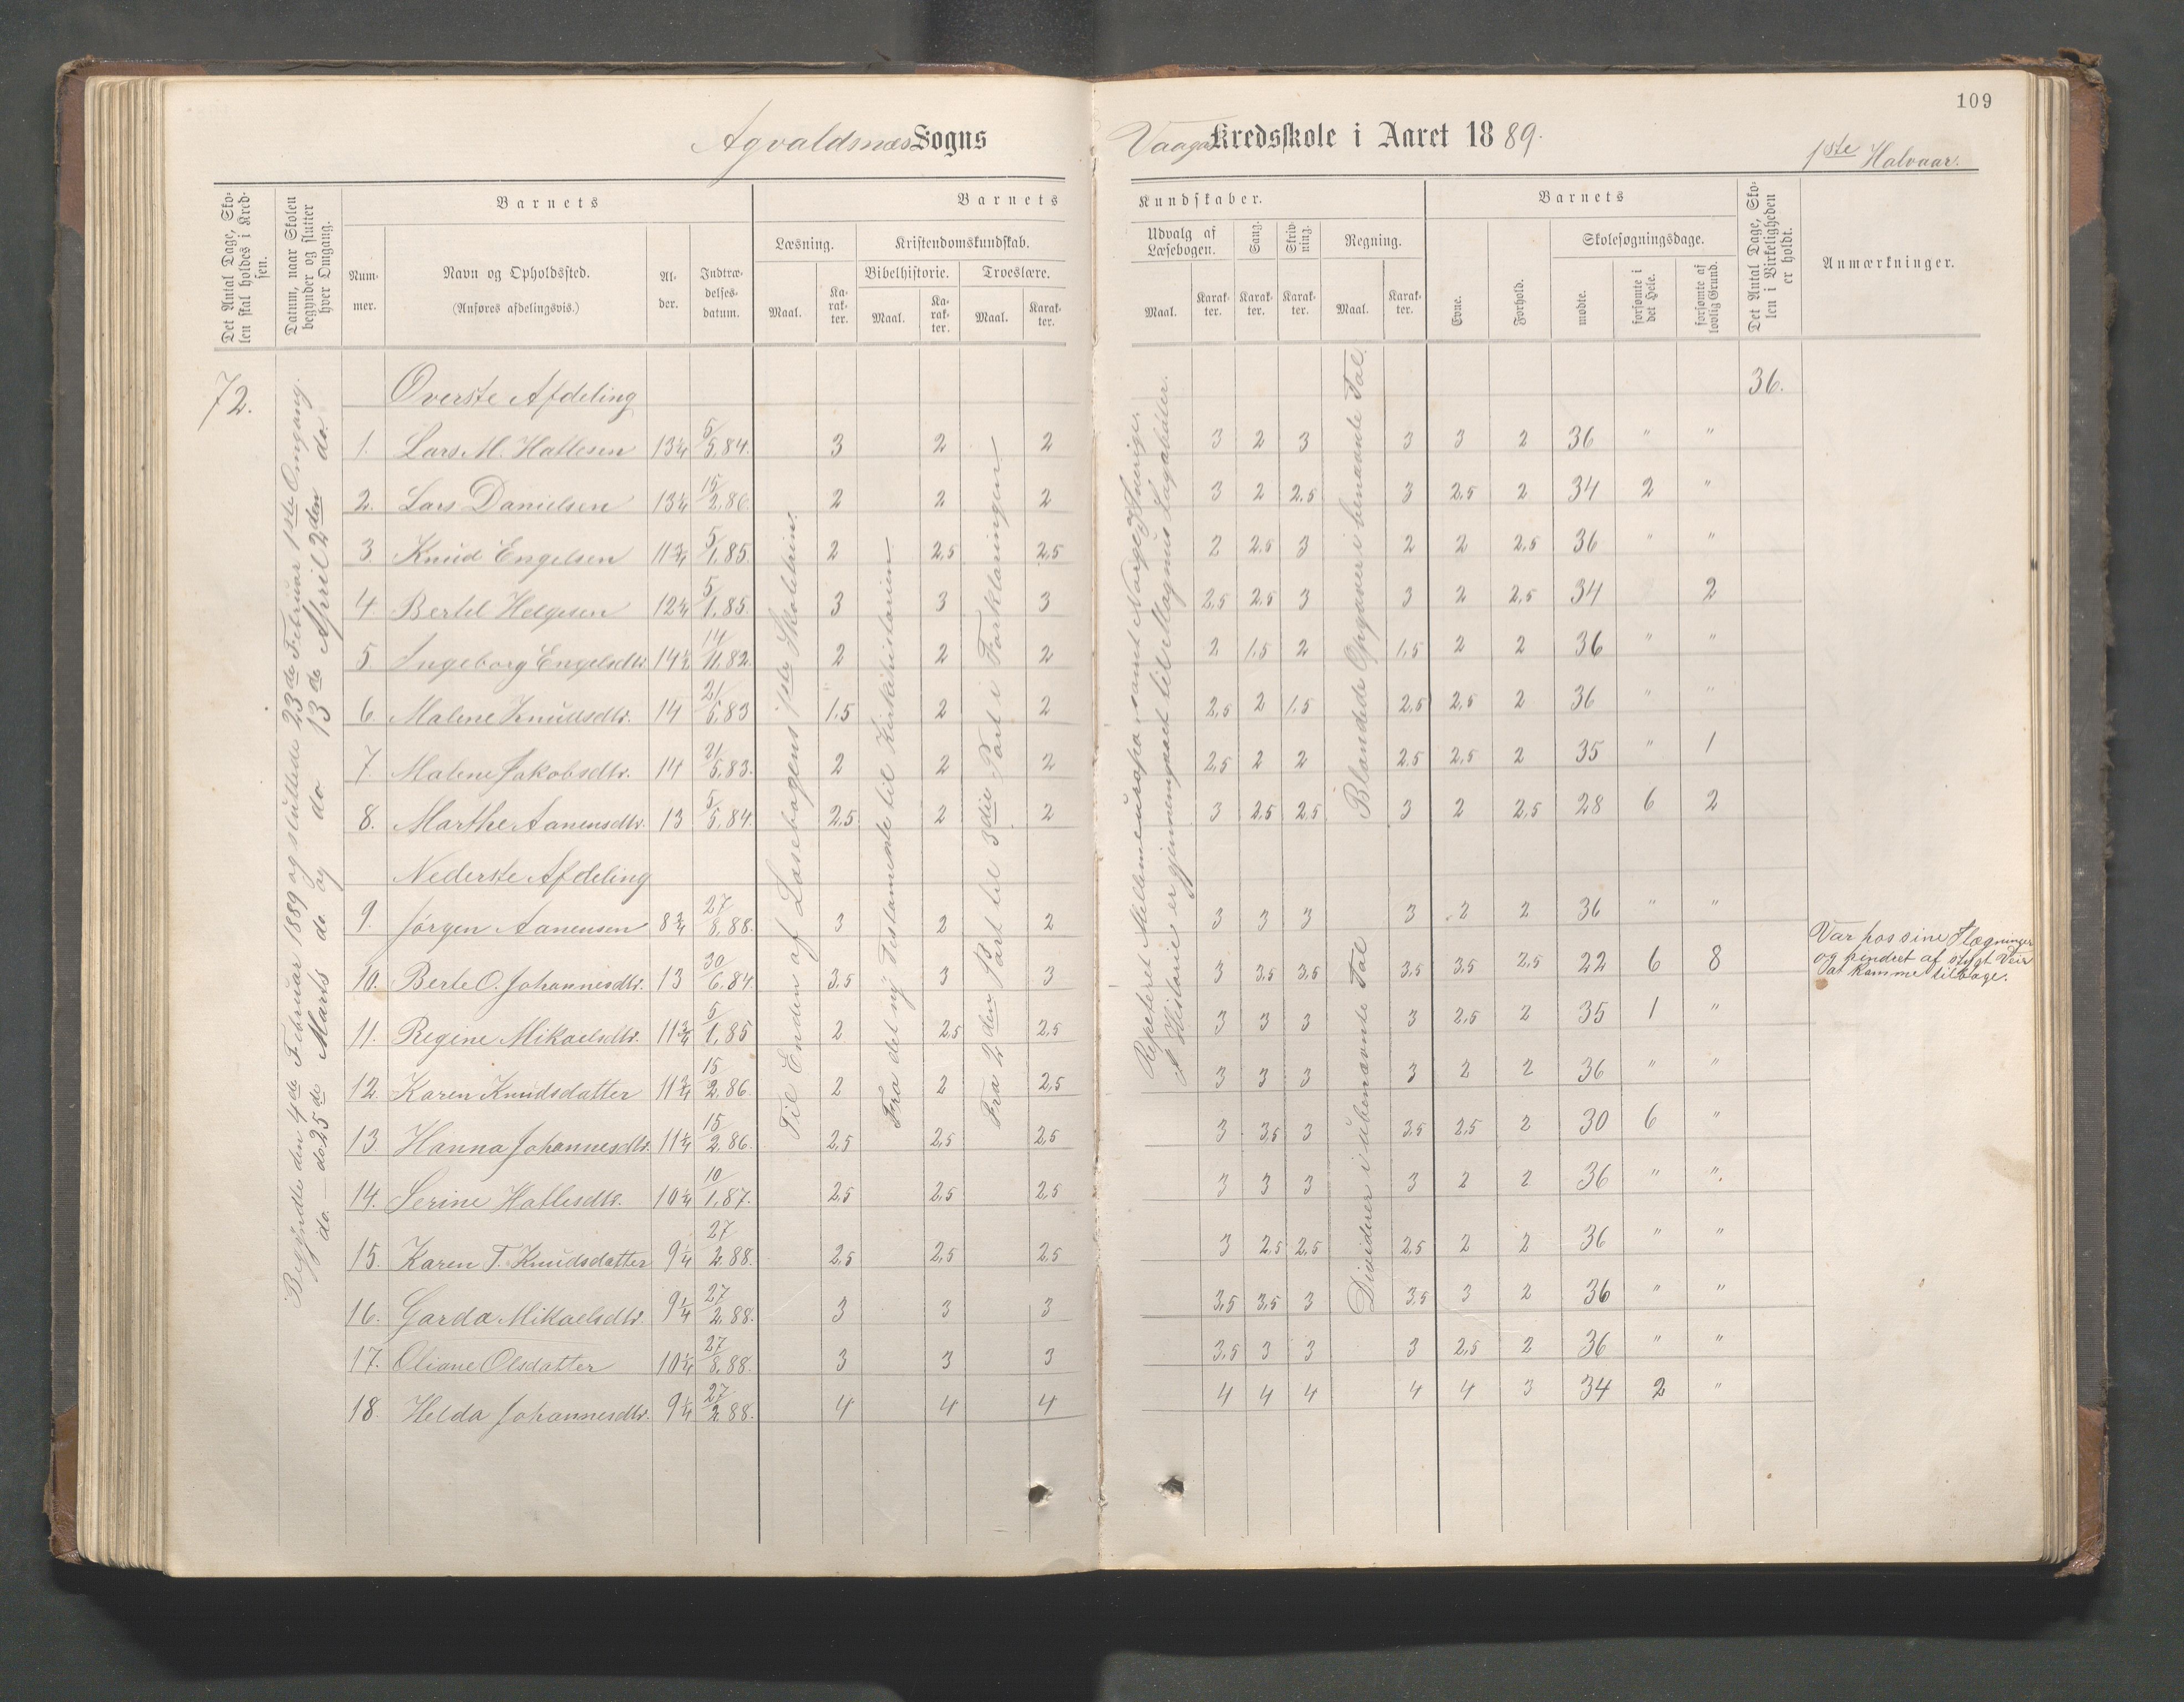 109
Agvaldsnæs Sogns
Vaaga Kredsskole i Aaret 1889.
1ste Halvaar.
Det Antal Dage, Sko-
len skal holdes i Kred-
sen.
Datum, naar Skolen
begynder og slutter
hver Omgang.
Barnets
Num-
mer.
Navn og Opholdssted.
(Anføres afdelingsvis.)
Al-
der.
Indtræ-
delses-
datum.
Barnets
Læsning.
Maal.
Ka-
rak-
ter.
Kristendomskundskab.
Bibelhistorie.
Maal.
Ka-
rak-
ter.
Troeslære.
Maal.
Karak-
ter.
Kundskaber.
Udvalg af
Læsebogen.
Maal.
Karak-
ter.
Sang.
Karak-
ter.
Skriv-
ning.
Karak-
ter.
Regning.
Maal.
Karak-
ter.
Barnets
Evne.
Forhold.
Skolesøgningsdage.
mødte.
forsømte i
det Hele.
forsømte af
lovlig Grund.
Det Antal Dage, Sko-
len i Virkeligheden
er holdt.
Anmærkninger.
72.
Begyndte den 4de Februar 1889 og sluttede 23de Februar 1ste Omgang.
do. – do 25de Marts do. og do 13de April 2den do.
Til Enden af Læsebogens 1ste Skoletrin.
Fra det ny Testamente til Kirkehistorien
Fra 2den Part til 3die Part i Forklaringen
Repeteret Mellemeuropa samt Norge og Sverige.
I Historie er gjennemgaaet til Magnus Lagabøter.
Blandede Opgaver i benævnte Tal.
Dividerer i ubenævnte Tal
Øverste Afdeling 36.
1. Lars M. Hallesen 13 1/4 5/5,84. 3 2 2 3 2 3 3 3 2 36 " "
2. Lars Danielsen 13 1/4 15/2,86. 2 2 2 3 2 2,5 3 2,5 2 34 2 "
3. Knud Engelsen 11 3/4 5/1,85. 2 2,5 2,5 2 2,5 3 2 2 2,5 36 " "
4. Bertel Helgesen 12 1/4 5/1,85. 3 3 3 2,5 2,5 3 3 2 2,5 34 2
5. Ingeborg Engelsdtr. 14 1/2 14/11,82. 2 2 2 2 1,5 2 1,5 2 2 36 " "
6. Malene Knudsdtr. 14 21/5,83 1,5 2 2 2,5 2 1,5 2,5 2,5 2 36 " "
7. Malene Jakobsdtr. 14 21/5,83. 2 2 2 2,5 2 2 2,5 2,5 2 35 " 1
8. Marthe Aanensdtr. 13 5/5,84. 2,5 2 2 3 2,5 2,5 3 2 2,5 28 6 2
Nederste Afdeling
9. Jørgen Aanensen 8 3/4 27/8,88. 3 2 2 3 3 3 3 2 2 36 " "
10. Berte O. Johannesdtr. 13 30/6,84. 3,5 3 3 3 3,5 3,5 3,5 3,5 2,5 22 6 8
Var hos sine Slægninger
og hindret af stygt Veir
at komme tilbage.
11. Regine Mikaelsdtr. 11 3/4 5/1,85 2 2,5 2,5 3 3 3 3 2,5 2 35 1 "
12. Karen Knudsdatter 11 3/4 15/2,86 2 2 2,5 3 3 3 3 2 2 36 " "
13. Hanna Johannesdtr. 11 1/4 15/2,86. 2,5 2,5 2,5 3 3,5 3 3,5 2,5 2 30 6 "
14. Serine Hallesdtr. 10 1/4 10/1,87. 2,5 2,5 2,5 3 3 3 3 2 2 36 " "
15. Karen T. Knudsdatter 9 1/4 27/2,88. 2,5 2,5 2,5 3 2,5 2,5 2,5 2 2 36 " "
16. Garda Mikaelsdtr. 9 1/4 27/2,88. 3 3 3 3,5 3,5 3 3,5 3 2 36 " "
17. Oliane Olsdatter 10 1/4 27/8,88. 3 3 3 3,5 3 3 3 2,5 2 36 " "
18. Helda Johannesdtr. 9 1/4 27/2,88. 4 4 4 4 4 4 4 4 3 34 2 "